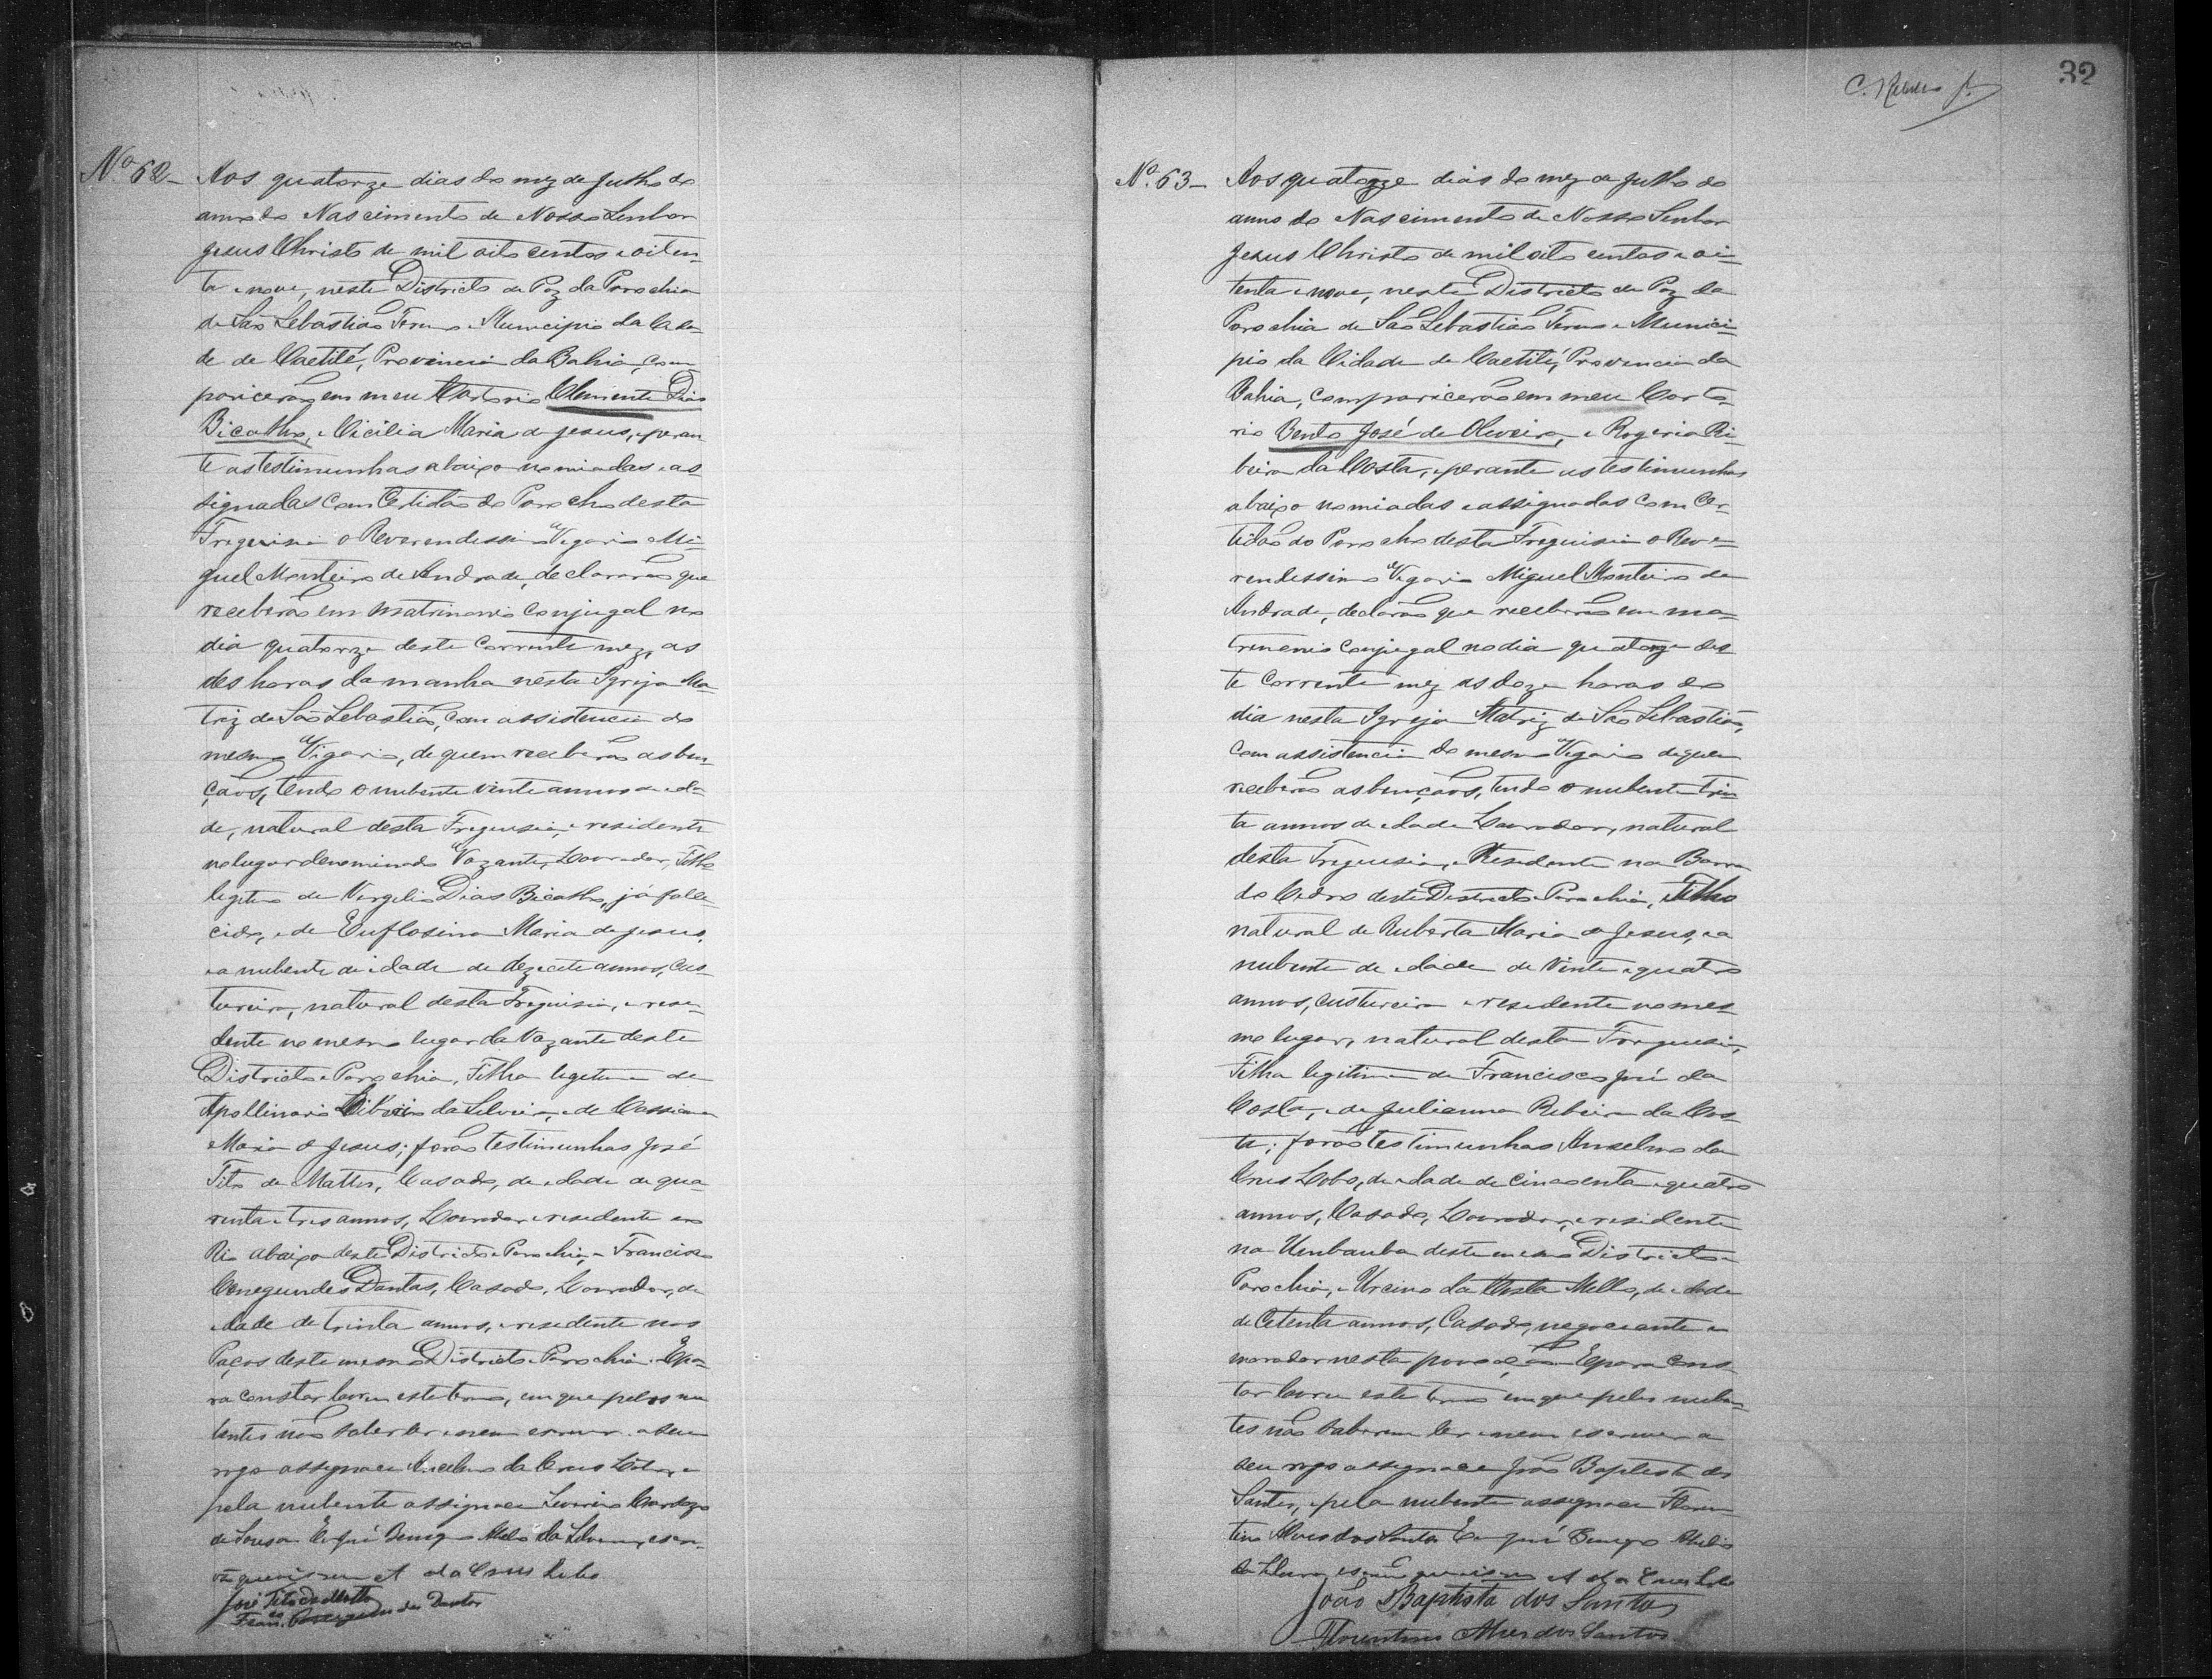 Nº 62 - Aos quatorze dias do mez de Julho do
anno do Nascimento de Nosso Senhor
Jesus Christo de mil oito centos e oiten-
ta e nove, neste Districto de Paz da Parochia
de São Sebastião Termo e Municipio da Cida-
de de Caetité, Provincia da Bahia, com-
paricerão em meu Cartorio Clemente Dias
Bicalho, e Cicilia Maria de Jesus, e peran
te as testimunhas abaixo nomiadas e as
signadas com Certidão do Parocho desta
Freguisia o Reverendessimo Vigario Mi-
guel Monteiro de Andrade, declararão que
receberão em matrimonio conjugal no
dia quatorze deste corrente mez, as
des horas da manha nesta Igreja Ma-
triz de São Sebastião, com assistencia do
mesmo Vigario, de quem receberão as ben-
çaõs, tendo o nubente vinte annos de eda-
de, natural desta Freguesia, e residente
no lugar denominado Vazante, Lavrador, Filho
legitimo de Vergilio Dias Bicalho, já falle-
cido, e de Euflosina Maria de Jesus,
e a nubente de idade de dezecete annos, cus-
tureira, natural desta Freguisia, e resi-
dente no mesmo lugar da Vazante deste
Districto e Parochia, Filha legitima de
Apollinario Ribeiro da Silveira, e de Cassiana
Maria de Jesus; forão testimunhas José
Tito de Mattos, Casado, de edade de qua-
renta e tres annos, Lavrador e residente em
Rio abaixo deste Districto e Parochia, e Francisco
Conegundes Dantas, Casado, Lavrador, de
edade de trinta annos, e residente nos
Paços deste mesmo Districto e Parochia. E pa-
ra constar lavrei este termo, em que pelos nu
bentes não saber ler e nem escrever a seu
rogo assignace Anselmo da Crus Lobo, e
pela nubente assignace Cardozo
de Sousa Eu José da Silveira, escri-
vão que escrevi A da Crus Lobo
José Tito de Mattos
Fran.co Conegundes Dantas
C. Neves Jr.
32
Nº 63 - Aos quatorze dias do mez de Julho do
anno do Nascimento de Nosso Senhor
Jesus Christo de mil oito centos e oi-
tenta e nove, neste Districto de Paz da
Parochia de São Sebastião Termo e Munici-
pio da Cidade de Caetité, Provencia da
Bahia, comparicerão em meu Carto-
rio Bento José de Oliveira, e Rogeria Ri-
beira da Costa, e perante as testimunhas
abaixo nomiadas e assignadas com Cer-
tidão do Parocho desta Freguisia o Reve-
rendessimo Vigario Miguel Monteiro de
Andrade, declarão que receberão em ma-
trimonio conjugal no dia quatorze des
te corrente mez as doze horas do
dia nesta Igreja Matriz de São Sebastião,
com assistencia do mesmo Vigario de quem
receberão as bençaõs, tendo o nubente trin-
ta annos de edade Lavrador, natural
desta Freguesia, e Residente na Barra
do Cedro deste Districto e Parochia, Filho
natural de Ruberta Maria de Jesus, e a
nubente de edade de vinte e quatro
annos, custureira e residente no mes-
mo lugar, natural desta Freguesia,
Filha legitima de Francisco José da
Costa, e de Julianna Ribeira da Cos-
ta; forão testimunhas Anselmo da
Crus Lobo, de edade de cincoenta e quatro
annos, Casado, Lavrador, e residente
na Umbauba deste mesmo Districto e
Parochia, e Urcino da Costa Mello, de edade
de Cetenta annos, Casado, negociante e
morador nesta povoação E para cons-
tar lavrei este termo em que pelos nuben-
tes não saberem ler e nem escrever a
seu rogo assignace João Baptista dos
Santos, e pela nubente assignace Floren-
tino Alves dos Santos Eu José
da Silveira, escrivão que escrevi A da Crus Lobo
João Baptista dos Santos
Florentino Alves dos Santos